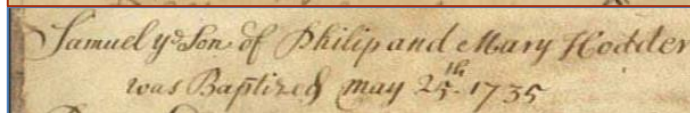 Samuel yᵉ Son of Philip and Mary Hodder
was Baptized may 25.ᵗʰ 1735